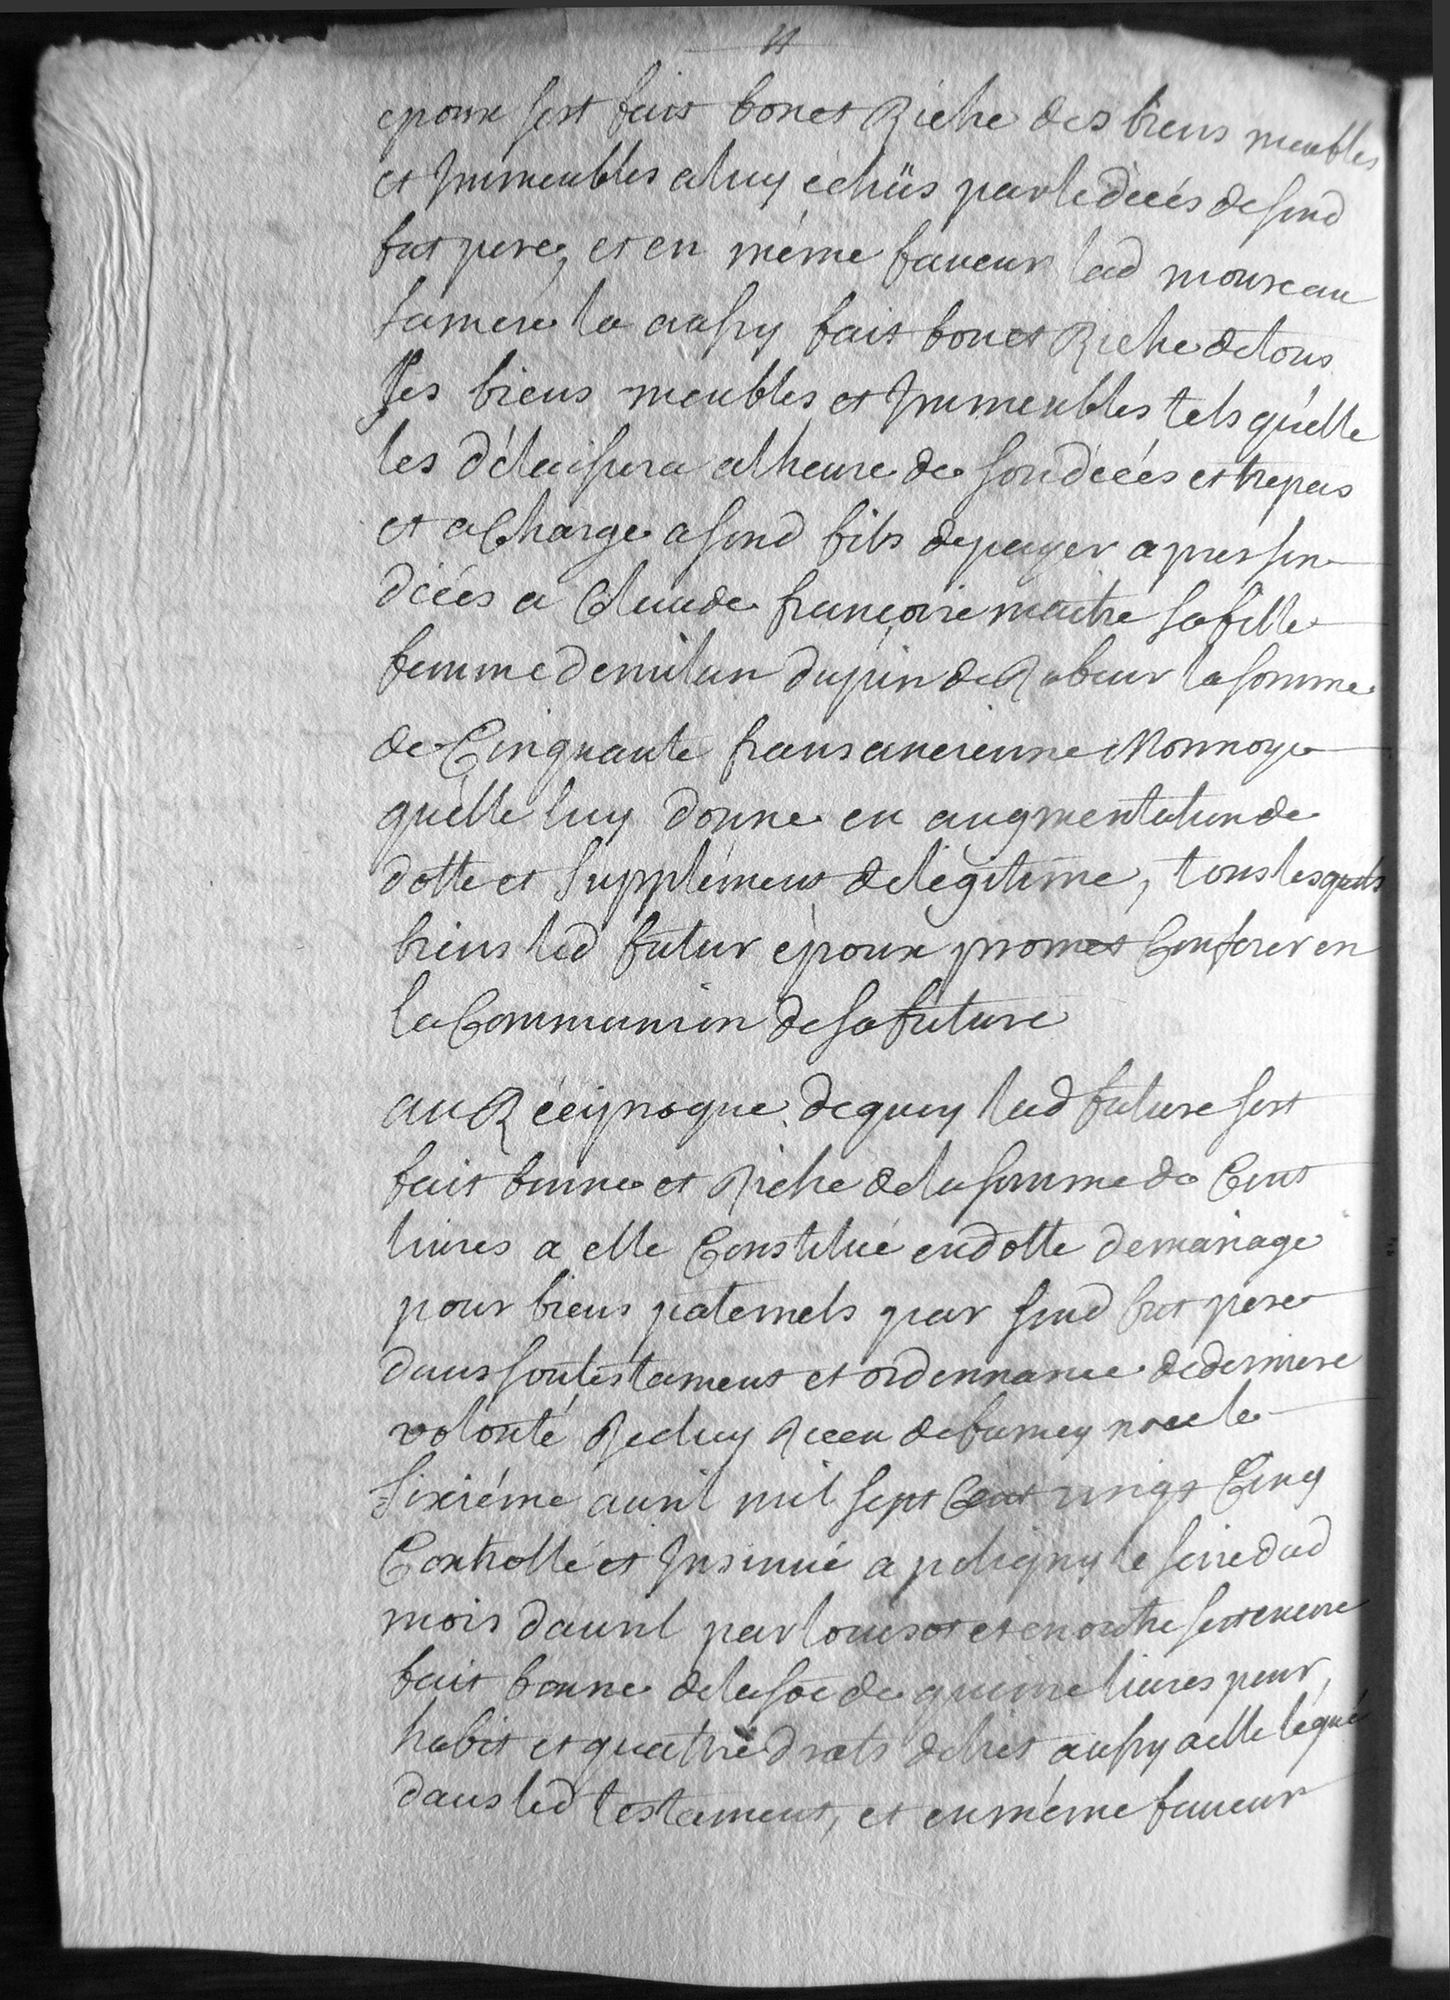 epoux sest fait bon et Riche des biens meubles
et Immeubles a luy échüs par le décés de sond
fut pere, et en méme faveur lad moureau
sa mere la aussy fait bon et Riche de tous
ses biens meubles et Immeubles tels qu'elle
les délaissera a lheure de son décés et trepas
et a Charge a sond fils de payer apres son
décés a Claude francoise maitre sa fille
femme de milan dupin de Rabeur la somme
de Cinquante frans ancienne Monnoye
quelle luy donne en augmentation de
dotte et supplément de légitime, tous lesquels
biens led futur époux promet Conferer en
la Communion de sa future
au Réciproque de quoy lad future sest
fait bonne et Riche de la somme de Cent
livres a elle Constitué en dotte de mariage
pour biens paternels par sond fut pere
dans son testament et ordonnance de derniere
volonté Reduy Receu de fumey nore le
sixiéme avril mil sept Cent vingt Cinq
Controllé et Insinué a poligny le seize dud
mois davril par louisot et en outre sest encore
fait bonne de la soe de quinze livres pour
habit et quatre drats de lict aussy a elle légué
dans led testament, et en méme faveur